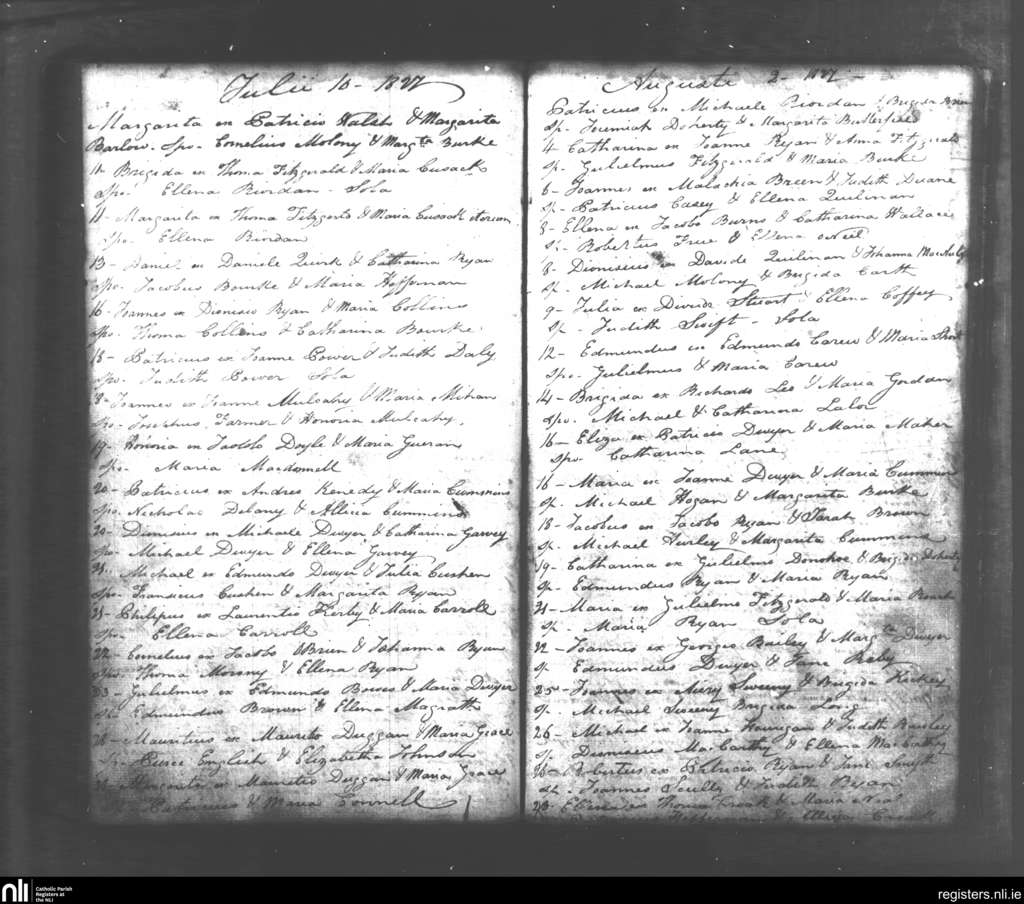 Julii 10 - 1827
Margarita ex Patricio Walsh & Margarita
Barlow. Spo. Cornelius Molony & Margta Burke
11 Brigida ex Thoma Fitzgerald & Maria Cusack
Spo. Ellena Riordan - Sola
11 - Margarita ex Thoma Fitzgerld & Maria Cusack iterum
Spo. Ellena Riordan
13 - Daniel ex Daniele Quirk & Catharina Ryan
Spo. Jacobus Bourke & Maria Heffernan
16 - Joannes ex Dionisio Ryan & Maria Collins
Spo. Thoma Collins & Catharina Bourke
18 - Patricius ex Joanne Power & Judith Daly
Spo. Judith Power Sola
18 - Joannes ex Joanne Mulcahy & Maria Mihan
Spo. Josephus Farmer & Honoria Mulcahy.
19 - Honoria ex Jacobo Doyle & Maria Gueran
Spo. Maria Macdonnell
20 - Patricius ex Andrea Kenedy & Maria Cummins
Spo. Nicholas Delany & Allicia Cummins
20 - Dionisius ex Michaele Dwyer & Catharina Garvey
Spo. Michael Dwyer & Ellena Garvey
21. Michael ex Edmundo Dwyer & Julia Cushen
Spo. Franciscus Cushen & Margarita Ryan
21 - Philipus ex Laurentio Kirby & Maria Carroll
Spo. Ellena Carroll
22 - Cornelius ex Jacobo OBrien & Johanna Ryan
Spo. Thoma Morony & Ellena Ryan
23 - Gulielmus ex Edmundo & Maria Dwyer
Sp. Edmundus Brown & Ellena Magrath
28 - Mauritius ex Mauritio Duggan & Maria Grace
English & Elizabetha Johnson
Margarita ex Mauritio Duggan & Maria Grace
Patricius & Maria Connell
Augusti 3 - 1827 -
Patricius ex Michaele Riordan & Brigida
Sp. Jeremiah Doherty & Margarita Butterfield
4 Catharina ex Joanne Ryan & Anna Fitzgerald
Sp. Gulielmus Fitzgerald & Maria Burke
6 - Joannes ex Malachia Breen & Judith Duane
Sp - Patricius Casey & Ellena Quilinan
8 - Ellena ex Jacobo Burns & Catharina Wallace
Sp - Robertus True & Ellena Neil
8 - Dionisius ex Davide Quilinan & Johanna
Sp. Michael Molony & Brigida Carth
9 - Julia ex Davide Stuart & Ellena Coffey
Sp - Judith Swift - Sola
12 - Edmundus ex Edmundo Carew & Maria
Spo. Gulielmus & Maria Carew
14 - Brigida ex Richardo Leo & Maria Godden
Spo. Michael & Catharina Lalor
16 - Eliza ex Patricio Dwyer & Maria Maher
Spo. Catharina Lane
16 - Maria ex Joanne Dwyer & Maria Cummins
Sp. Michael Hogan & Margarita Burke
18 - Jacobus ex Jacobo Ryan & Sarah Brown
Sp. Michael Hurley & Margarita Cummins
19 - Catharina ex Gulielmo Donohoe & Brigida Doherty
Sp - Edmundus Ryan & Maria Ryan
21 - Maria ex Gulielmo Fitzgerald & Maria
Sp. Maria Ryan Sola
22 - Joannes ex Georgio Bailey & Margta Dwyer
Sp Edmundus Dwyer & Jane Raly
25 - Joannes ex Sweeny & Brigida Hickey
Sp. Michael Sweeny Brigida Long
26 - Michael ex Joanne Hourigan & Judith
Sp. Dionisius MacCarthy & Ellena MacCarthy
26 - Robertus ex Patricio Ryan & Jane Smyth
Sp. Joannes Scully & Judith Ryan
28 Thoma & Maria Neal
Heffernan & Cusack
nli
Catholic Parish
Registers at
the NLI
registers.nli.ie